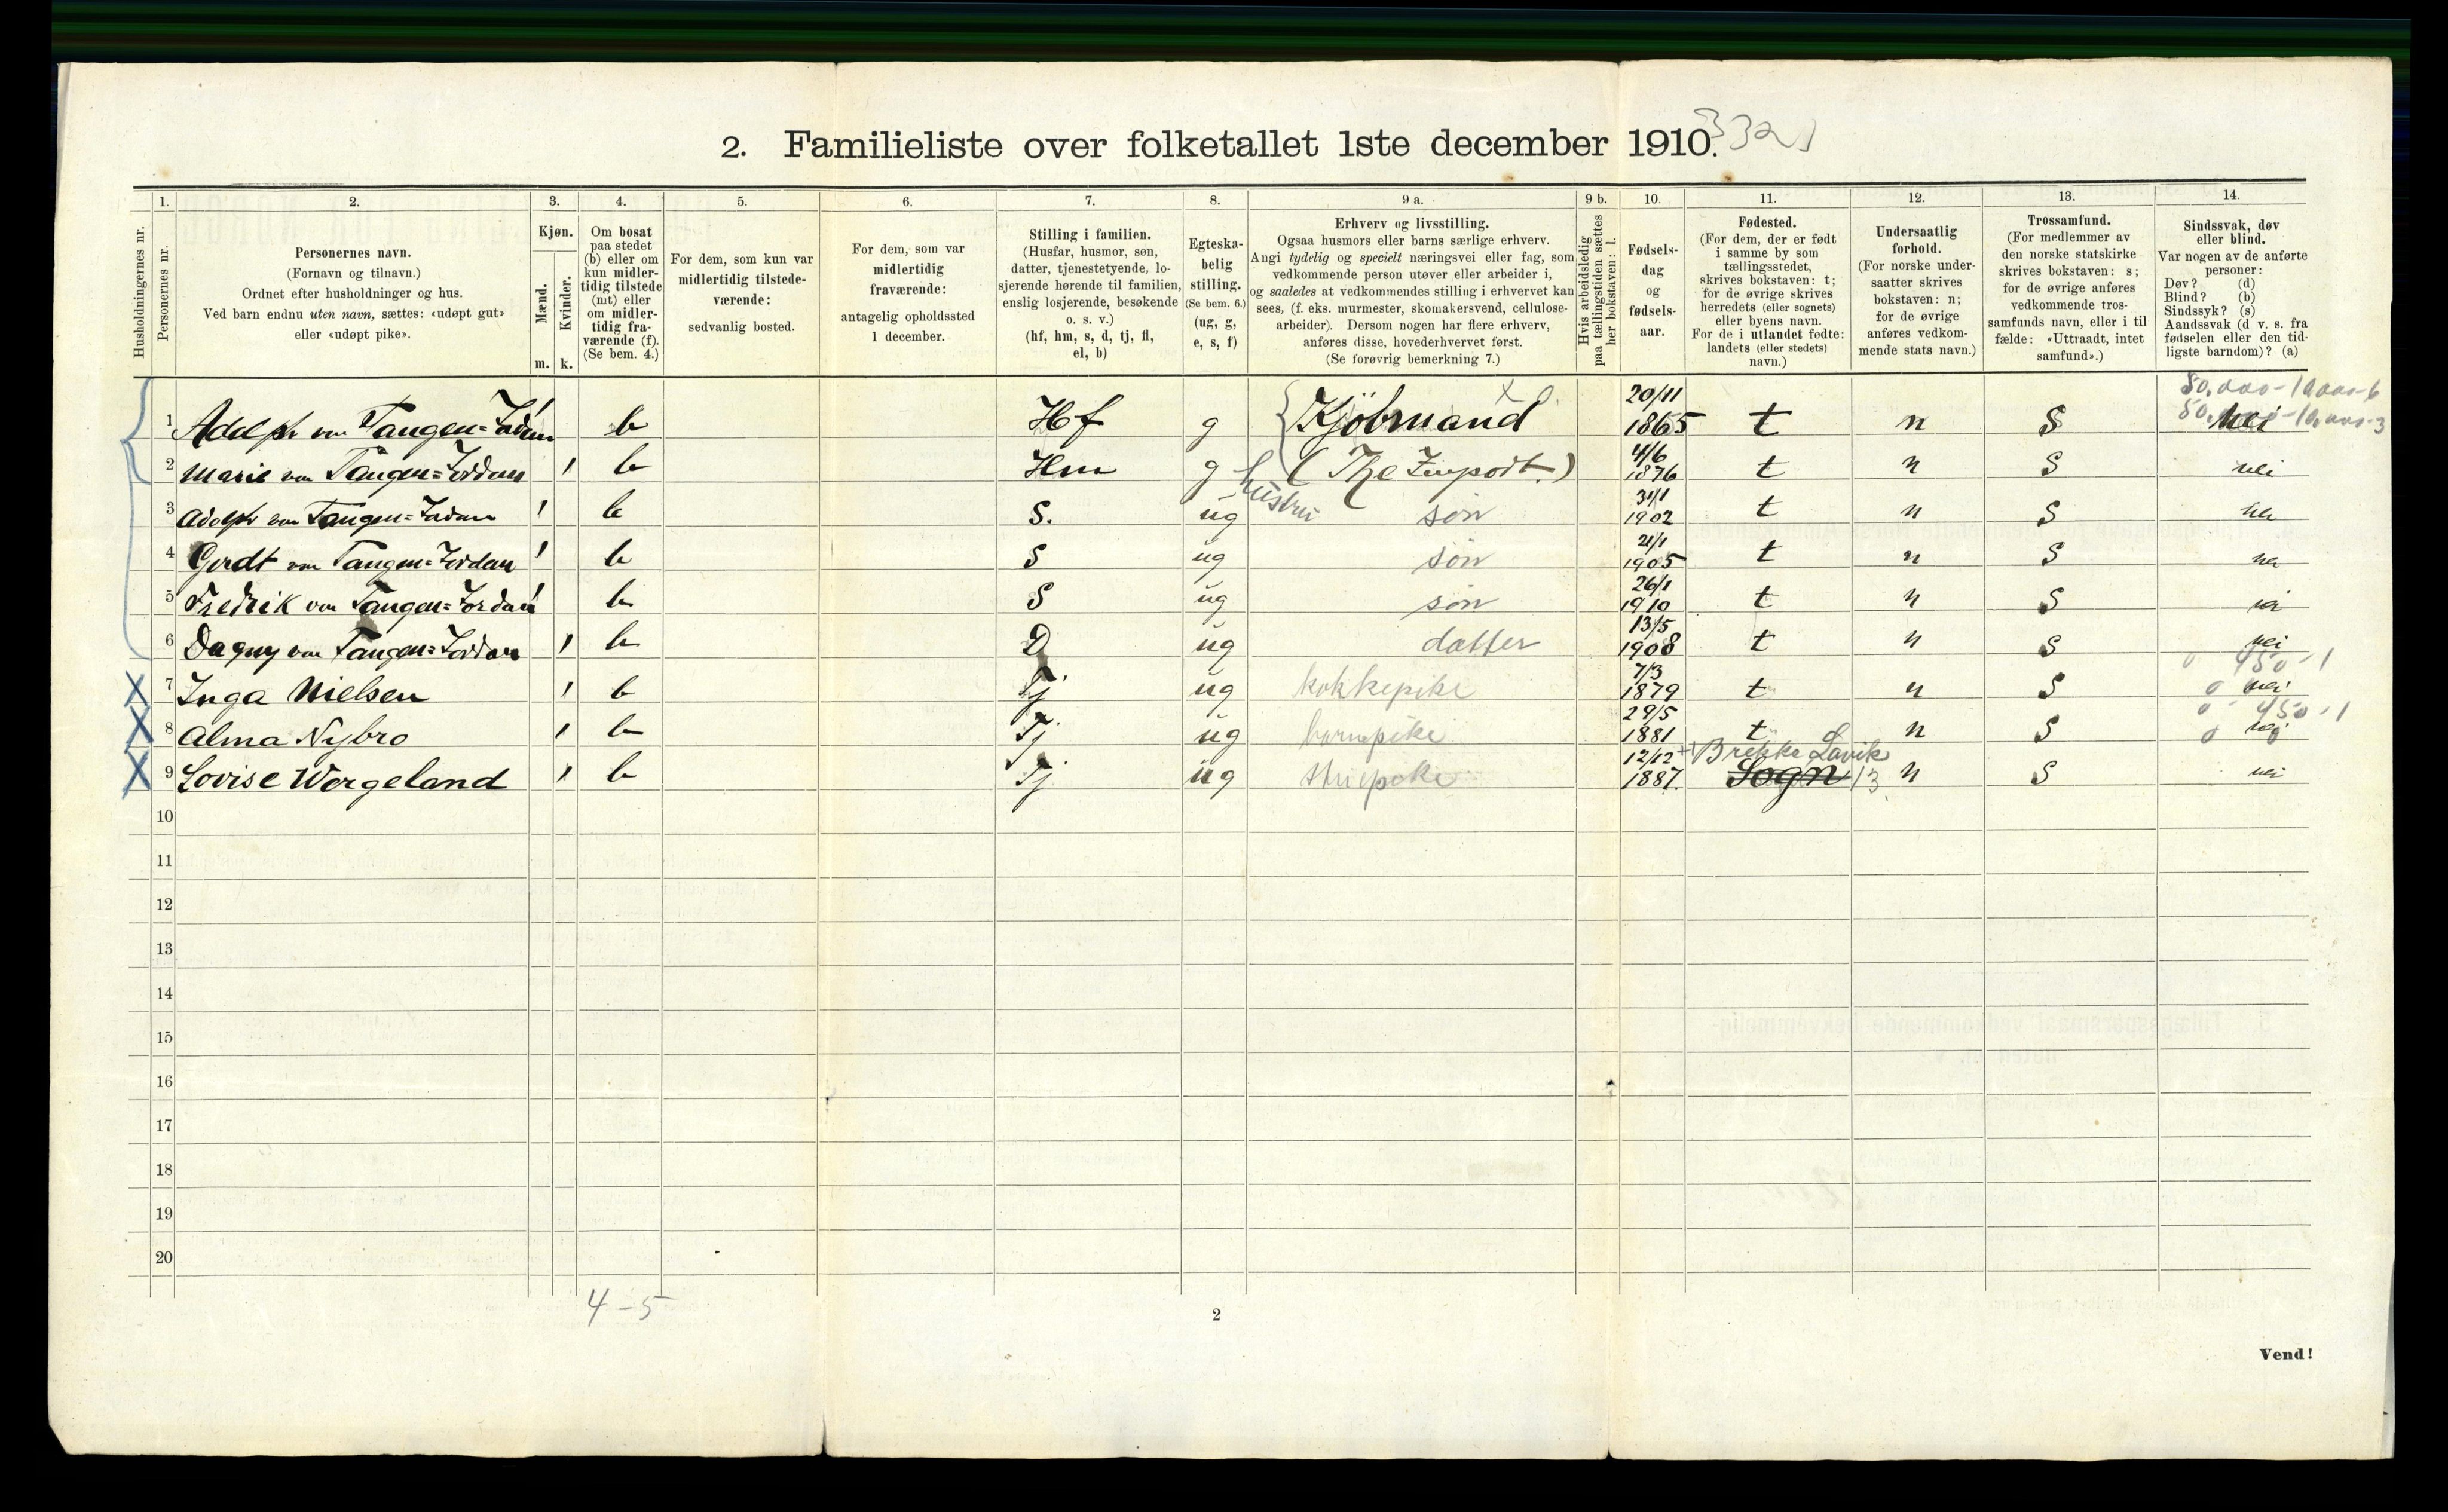 2. Familieliste over folketallet 1ste december 1910.
1. 2. 3. 4. 5. 6. 7. 8. 9 a. 9 b. 10. 11. 12. 13. 14.
Husholdningernes nr.
Personernes nr.
Personernes navn.
(Fornavn og tilnavn.)
Ordnet efter husholdninger og hus.
Ved barn endnu uten navn, sættes: «udøpt gut»
eller «udøpt pike».
Kjøn.
Mænd.
Kvinder.
m. k.
Om bosat
paa stedet
(b) eller om
kun midler-
tidig tilstede
(mt) eller
om midler-
tidig fra-
værende (f).
(Se bem. 4.)
For dem, som kun var
midlertidig tilstede-
værende:
sedvanlig bosted.
For dem, som var
midlertidig
fraværende:
antagelig opholdssted
1 december.
Stilling i familien.
(Husfar, husmor, søn,
datter, tjenestetyende, lo-
sjerende hørende til familien,
enslig losjerende, besøkende
o. s. v.)
(hf, hm, s, d, tj, fl,
el, b)
Egteska-
belig
stilling.
(Se bem. 6.)
(ug, g,
e, s, f)
Erhverv og livsstilling.
Ogsaa husmors eller barns særlige erhverv.
Angi tydelig og specielt næringsvei eller fag, som
vedkommende person utøver eller arbeider i,
og saaledes at vedkommendes stilling i erhvervet kan
sees, (f. eks. murmester, skomakersvend, cellulose-
arbeider). Dersom nogen har flere erhverv,
anføres disse, hovederhvervet først.
(Se forøvrig bemerkning 7.)
Hvis arbeidsledig
paa tællingstiden sættes
her bokstaven: l.
Fødsels-
dag
og
fødsels-
aar.
Fødested.
(For dem, der er født
i samme by som
tællingsstedet,
skrives bokstaven: t;
for de øvrige skrives
herredets (eller sognets)
eller byens navn.
For de i utlandet fødte:
landets (eller stedets)
navn.)
Undersaatlig
forhold.
(For norske under-
saatter skrives
bokstaven: n;
for de øvrige
anføres vedkom-
mende stats navn.)
Trossamfund.
(For medlemmer av
den norske statskirke
skrives bokstaven: s;
for de øvrige anføres
vedkommende tros-
samfunds navn, eller i til
fælde: «Uttraadt, intet
samfund».)
Sindssvak, døv
eller blind.
Var nogen av de anførte
personer:
Døv? (d)
Blind? (b)
Sindssyk? (s)
Aandssvak (d v. s. fra
fødselen eller den tid-
ligste barndom)? (a)
1 Adolph von Tangen=Jordan b Hf g Kjöbmand 20/11 1865 t n S nei
2 Marie von Tangen=Jordan 1 b Hm g hustru (The Import.) 4/6 1876 t n S nei
3 Adolph von Tangen=Jordan 1 b S. ug søn 31/1 1902 t n S nei
4 Gerdt von Tangen=Jordan 1 b S ug søn 21/1 1905 t n S nei
5 Fredrik von Tangen=Jordan 1 b S ug søn 26/1 1910 t n S nei
6 Dagny von Tangen=Jordan 1 b D ug datter 13/5 1908 t n S nei
7 Inga Nielsen 1 b Tj ug kokkepike 7/3 1879 t n S 450-1 nei
8 Alma Nybro 1 b Tj ug barnepike 29/5 1881 t n S 450-1 nei
9 Lovise Wergeland 1 b Tj ug 12/12 1887. Brekke Lavik Sogn n S nei
10
11
12
13
14
15
16
17
18
19
20
4-5
2
Vend!